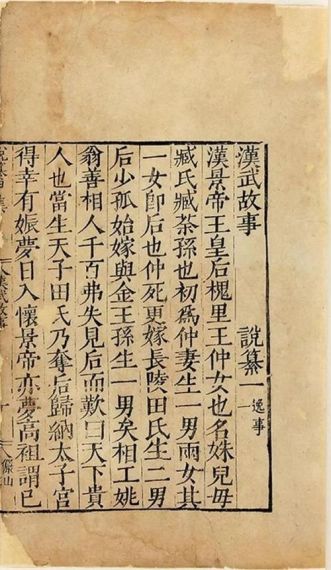 漢武故事 說纂一 逸事
漢景帝王皇后槐里王仲女也名姝兒毋
臧氏臧荼孫也初爲仲妻生一男兩女其
一女卽后也仲死更嫁長陵田氏生二男
后少孤始嫁與金王孫生一男矣相工姚
翁善相人千百弗失見后而歎曰天下貴
人也當生天子田氏乃奪后歸納太子宮
得幸有娠夢日入懷景帝亦夢高祖謂已
漢武故事